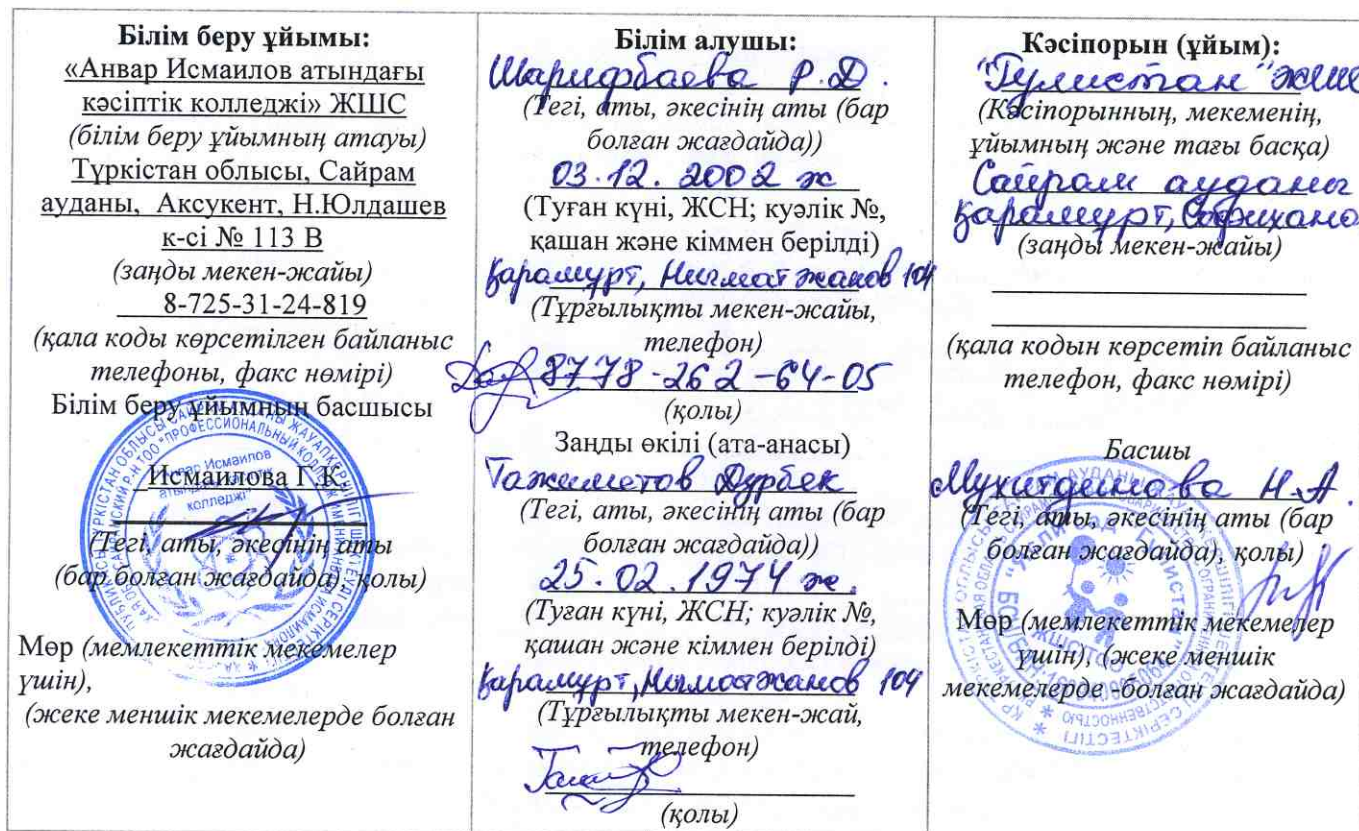 Білім беру ұйымы:
«Анвар Исмаилов атындағы
кәсіптік колледжі» ЖШС
(білім беру ұйымның атауы)
Түркістан облысы, Сайрам
ауданы, Аксукент, Н.Юлдашев
к-сі № 113 В
(заңды мекен-жайы)
8-725-31-24-819
(қала коды көрсетілген байланыс
телефоны, факс нөмірі)
Білім беру ұйымның басшысы
Исмаилова Г К
(Тегі, аты, әкесінің аты
(бар болған жағдайда), қолы)
Мөр (мемлекеттік мекемелер
үшін),
(жеке меншік мекемелерде болған
жағдайда)
Білім алушы:
Шарифбаева Р.Д.
(Тегі, аты, әкесінің аты (бар
болған жағдайда))
03.12.2002 ж
(Туған күні, ЖСН; куәлік №,
қашан және кіммен берілді)
Қарамурт, Нигматжанов 104
(Тұрғылықты мекен-жайы,
телефон)
8778-262-64-05
(қолы)
Заңды өкілі (ата-анасы)
Тажиметов Дурбек
(Тегі, аты, әкесінің аты (бар
болған жағдайда))
25.02.1974 ж.
(Туған күні, ЖСН; куәлік №,
қашан және кіммен берілді)
Қарамурт, Нигматжанов 104
(Тұрғылықты мекен-жай,
телефон)
(қолы)
Кәсіпорын (ұйым):
"Гулистан" ЖШС
(Кәсіпорынның, мекеменің,
ұйымның және тағы басқа)
Сайрам ауданы
Қарамурт,
(заңды мекен-жайы)
(қала кодын көрсетіп байланыс
телефон, факс нөмірі)
Басшы
Мухитдинова Н.А.
(Тегі, аты, әкесінің аты (бар
болған жағдайда), қолы)
Мөр (мемлекеттік мекемелер
үшін), (жеке меншік
мекемелерде -болған жағдайда)